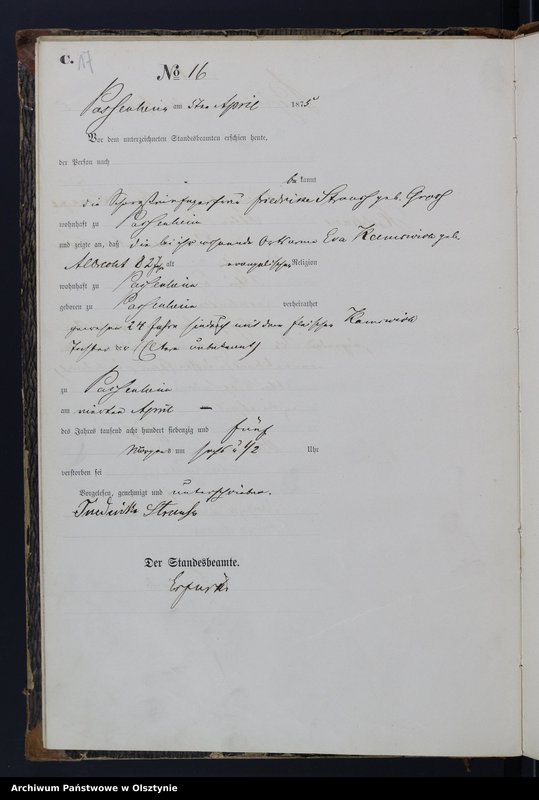 C. 17
No 16
Passenheim am 5ten April 1875
Vor dem unterzeichneten Standesbeamten erschien heute,
der Person nach
bekannt
die Friedricke Strauß geb.
wohnhaft zu Passenheim
und zeigte an, daß die bei ihr wohnende Ortsarme Eva geb.
Albrecht 82 J. alt evangelischer Religion
wohnhaft zu Passenheim
geboren zu Passenheim verheirathet
gewesen 24 Jahre hindurch mit dem Fleischer
Tochter der (Eltern unbekannt)
zu Passenheim
am vierten April
des Jahres tausend acht hundert siebenzig und fünf
Morgens um sechs u 1/2 Uhr
verstorben sei
Vorgelesen, genehmigt und unterschrieben.
Friedricke Strauß
Der Standesbeamte.
Archiwum Państwowe w Olsztynie